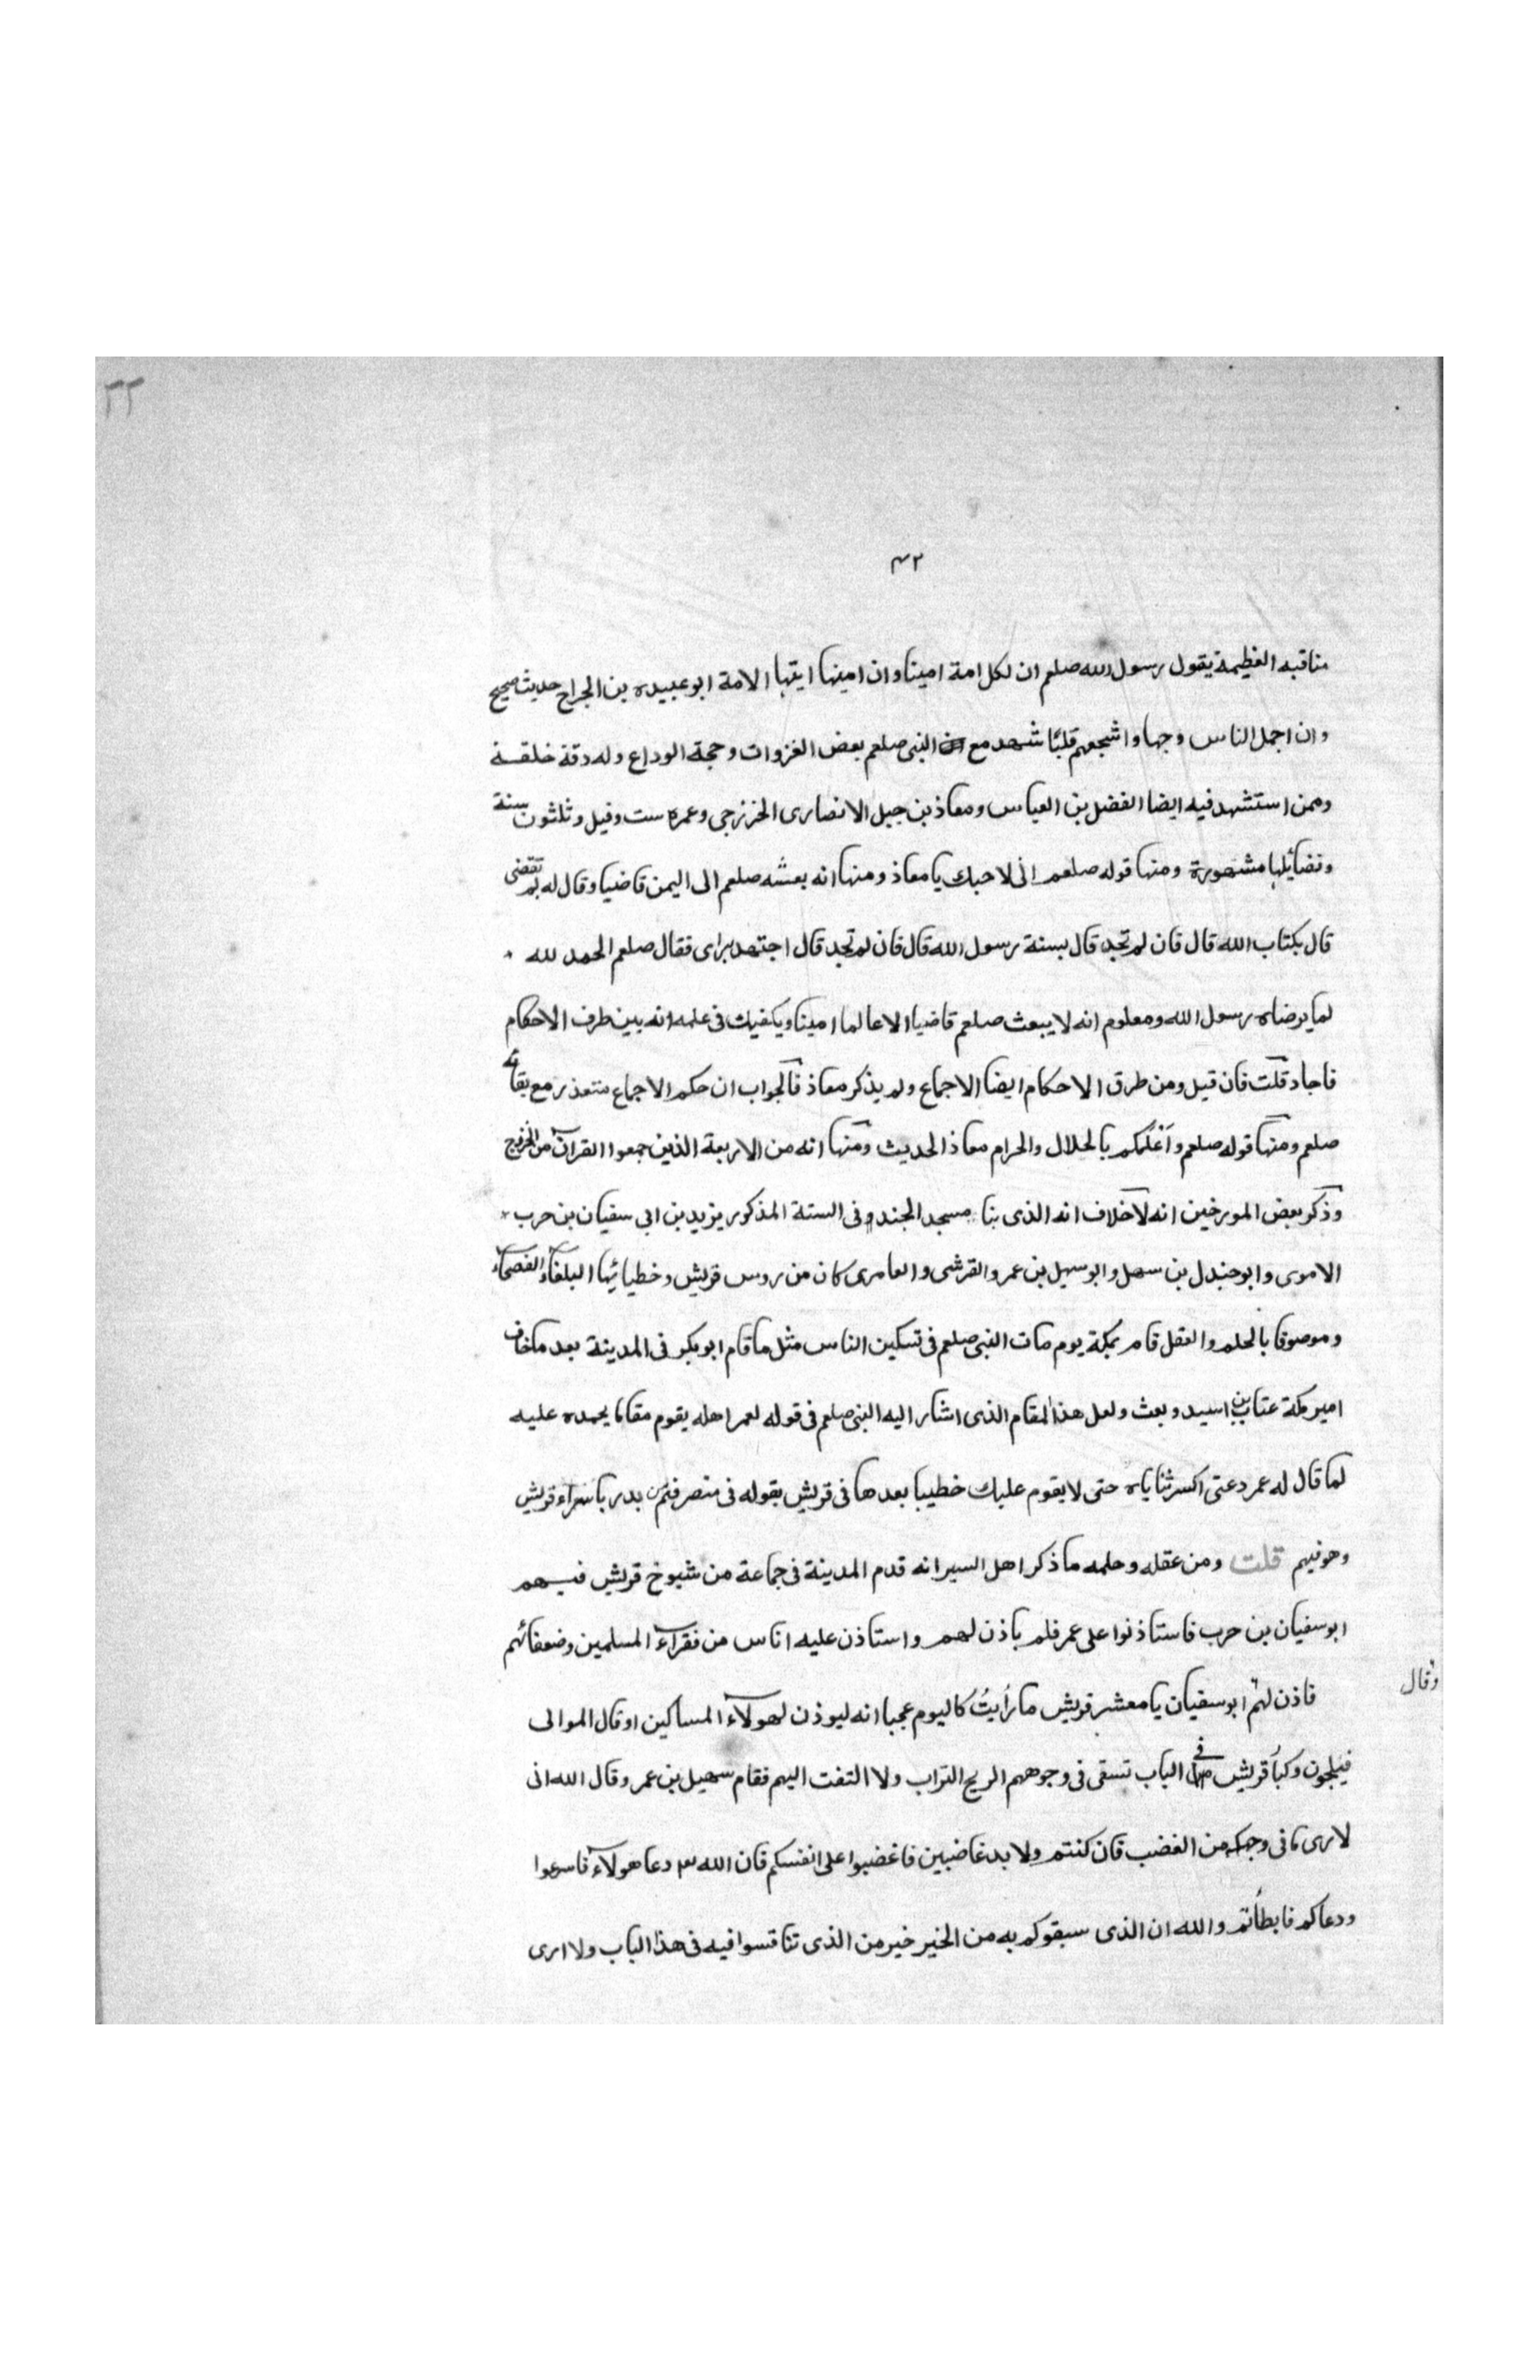 ٢٢
٤٢
مناقبه العظيمة يقول رسول الله صلعم ان لكل امة امينا وان امينها ايتها الامة ابو عبيده بن الجراح حديث صحيح
وان اجمل الناس وجها واشجعهم قلبًا شهد مع النبي صلعم بعض الغزوات وحجة الوداع وله دقة خلقة
وممن استشهد فيه ايضا الفضل بن العباس ومعاذ بن جبل الانصارى الخزرجي وعمره ست وقيل وثلثون سنة
وفضائلها مشهورة ومنها قوله صلعم انى لاحبك يا معاذ ومنها انه بعثه صلعم الى اليمن قاضيا وقال له بم تقضى
قال بكتاب الله قال فان لم تجد قال بسنة رسول الله قال فان لم تجد قال اجتهد براى فقال صلعم الحمد لله
لما يرضاه رسول الله ومعلوم انه لا يبعث صلعم قاضيا الا عالما امينا ويكفيك فى علمه انه بين طرف الاحكام
فاجاد قلت فان قيل ومن طرق الاحكام ايضا الاجماع ولم يذكر معاذ فالجواب ان حكم الاجماع متعذر مع بقائه
صلعم ومنها قوله صلعم واعلمكم بالحلال والحرام معاذ الحديث ومنها انه من الاربعة الذين جمعوا القرآن من الخزرج
وذكر بعض المورخين انه لا خلاف انه الذى بنا مسجد الجند وفى الستة المذكور يزيد بن ابي سفيان بن حرب
الاموى وابو جندل بن سهل وابو سهيل بن عمرو القرشى والعامرى كان من روس قريش وخطبائها البلغاء الفصحاء
وموصوفا بالحلم والعقل قام بمكة يوم مات النبى صلعم فى تسكين الناس مثل ما قام ابو بكر فى المدينة بعد ما خاف
امير مكة عتاب بن اسيد وبعث ولعل هذا المقام الذى اشار اليه النبى صلعم فى قوله لعمر اهله يقوم مقاما يحمده عليه
لما قال له عمر دعنى اكسر ثناياه حتى لا يقوم عليك خطيبا بعدها فى قريش بقوله فى منصرفهم من بدر باسراء قريش
وهو فيهم قلت ومن عقله وحلمه ما ذكر اهل السير انه قدم المدينة فى جماعة من شيوخ قريش فيهم
ابو سفيان بن حرب فاستاذنوا على عمر فلم ياذن لهم واستاذن عليه اناس من فقراء المسلمين وضعفائهم
فاذن لهم ابو سفيان يا معشر قريش ما رأيتُ كاليوم عجبا انه ليوذن لهولاء المساكين او قال الموالى
وقال
فيلجون وكبا قريش فى الباب تسقى فى وجوههم الريح التراب ولا التفت اليهم فقام سهيل بن عمر وقال الله انى
لارى ما فى وجهكم من الغضب فان كنتم ولا بد غاضبين فاغضبوا على انفسكم فان الله دعا هولاء فاسرعوا
ودعاكم فابطأتم والله ان الذى سبقوكم به من الخير خير من الذى تنافسوا فيه فى هذا الباب ولا ارى